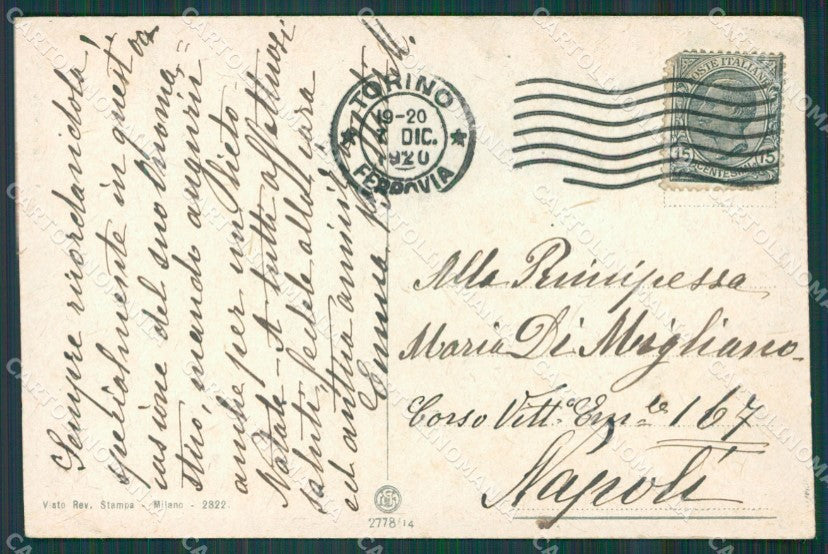 Sempre ricordandola
specialmente in quest'oc
casione del suo onoma=
stico, mando auguri
anche per un lieto
Natale - A tutti affettuosi
saluti, fedele alla cara
ed antica amicizia
Emma
TORINO
19-20
7 DIC.
1920
FERROVIA
POSTE ITALIANE
15 15
CENTESIMI
Alla Principessa
Maria Di Migliano -
Corso Vitt.º Em.le 167
Napoli
Visto Rev. Stampa - Milano - 2322.
2778/14
CARTOLINOMANIA